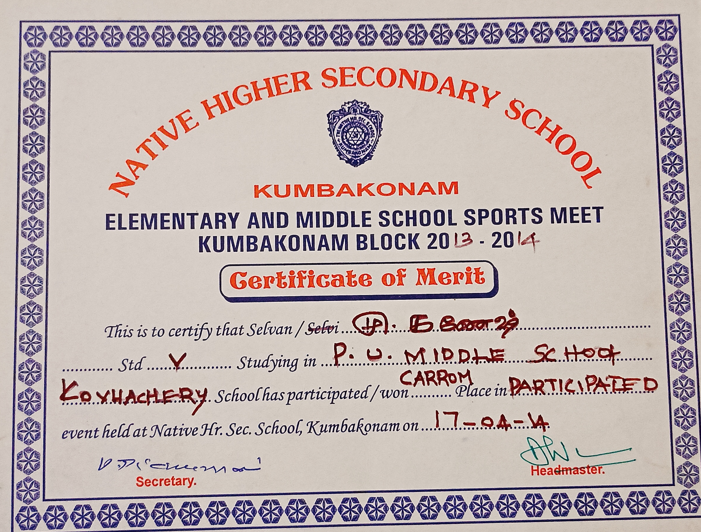 NATIVE HIGHER SECONDARY SCHOOL
KUMBAKONAM
ELEMENTARY AND MIDDLE SCHOOL SPORTS MEET
KUMBAKONAM BLOCK 2013 - 2014
Certificate of Merit
This is to certify that Selvan / Selvi
Std V Studying in P. U. MIDDLE SCHOOL
School has participated / won CARROM Place in PARTICIPATED
event held at Native Hr. Sec. School, Kumbakonam on 17-04-14
Secretary. Headmaster.